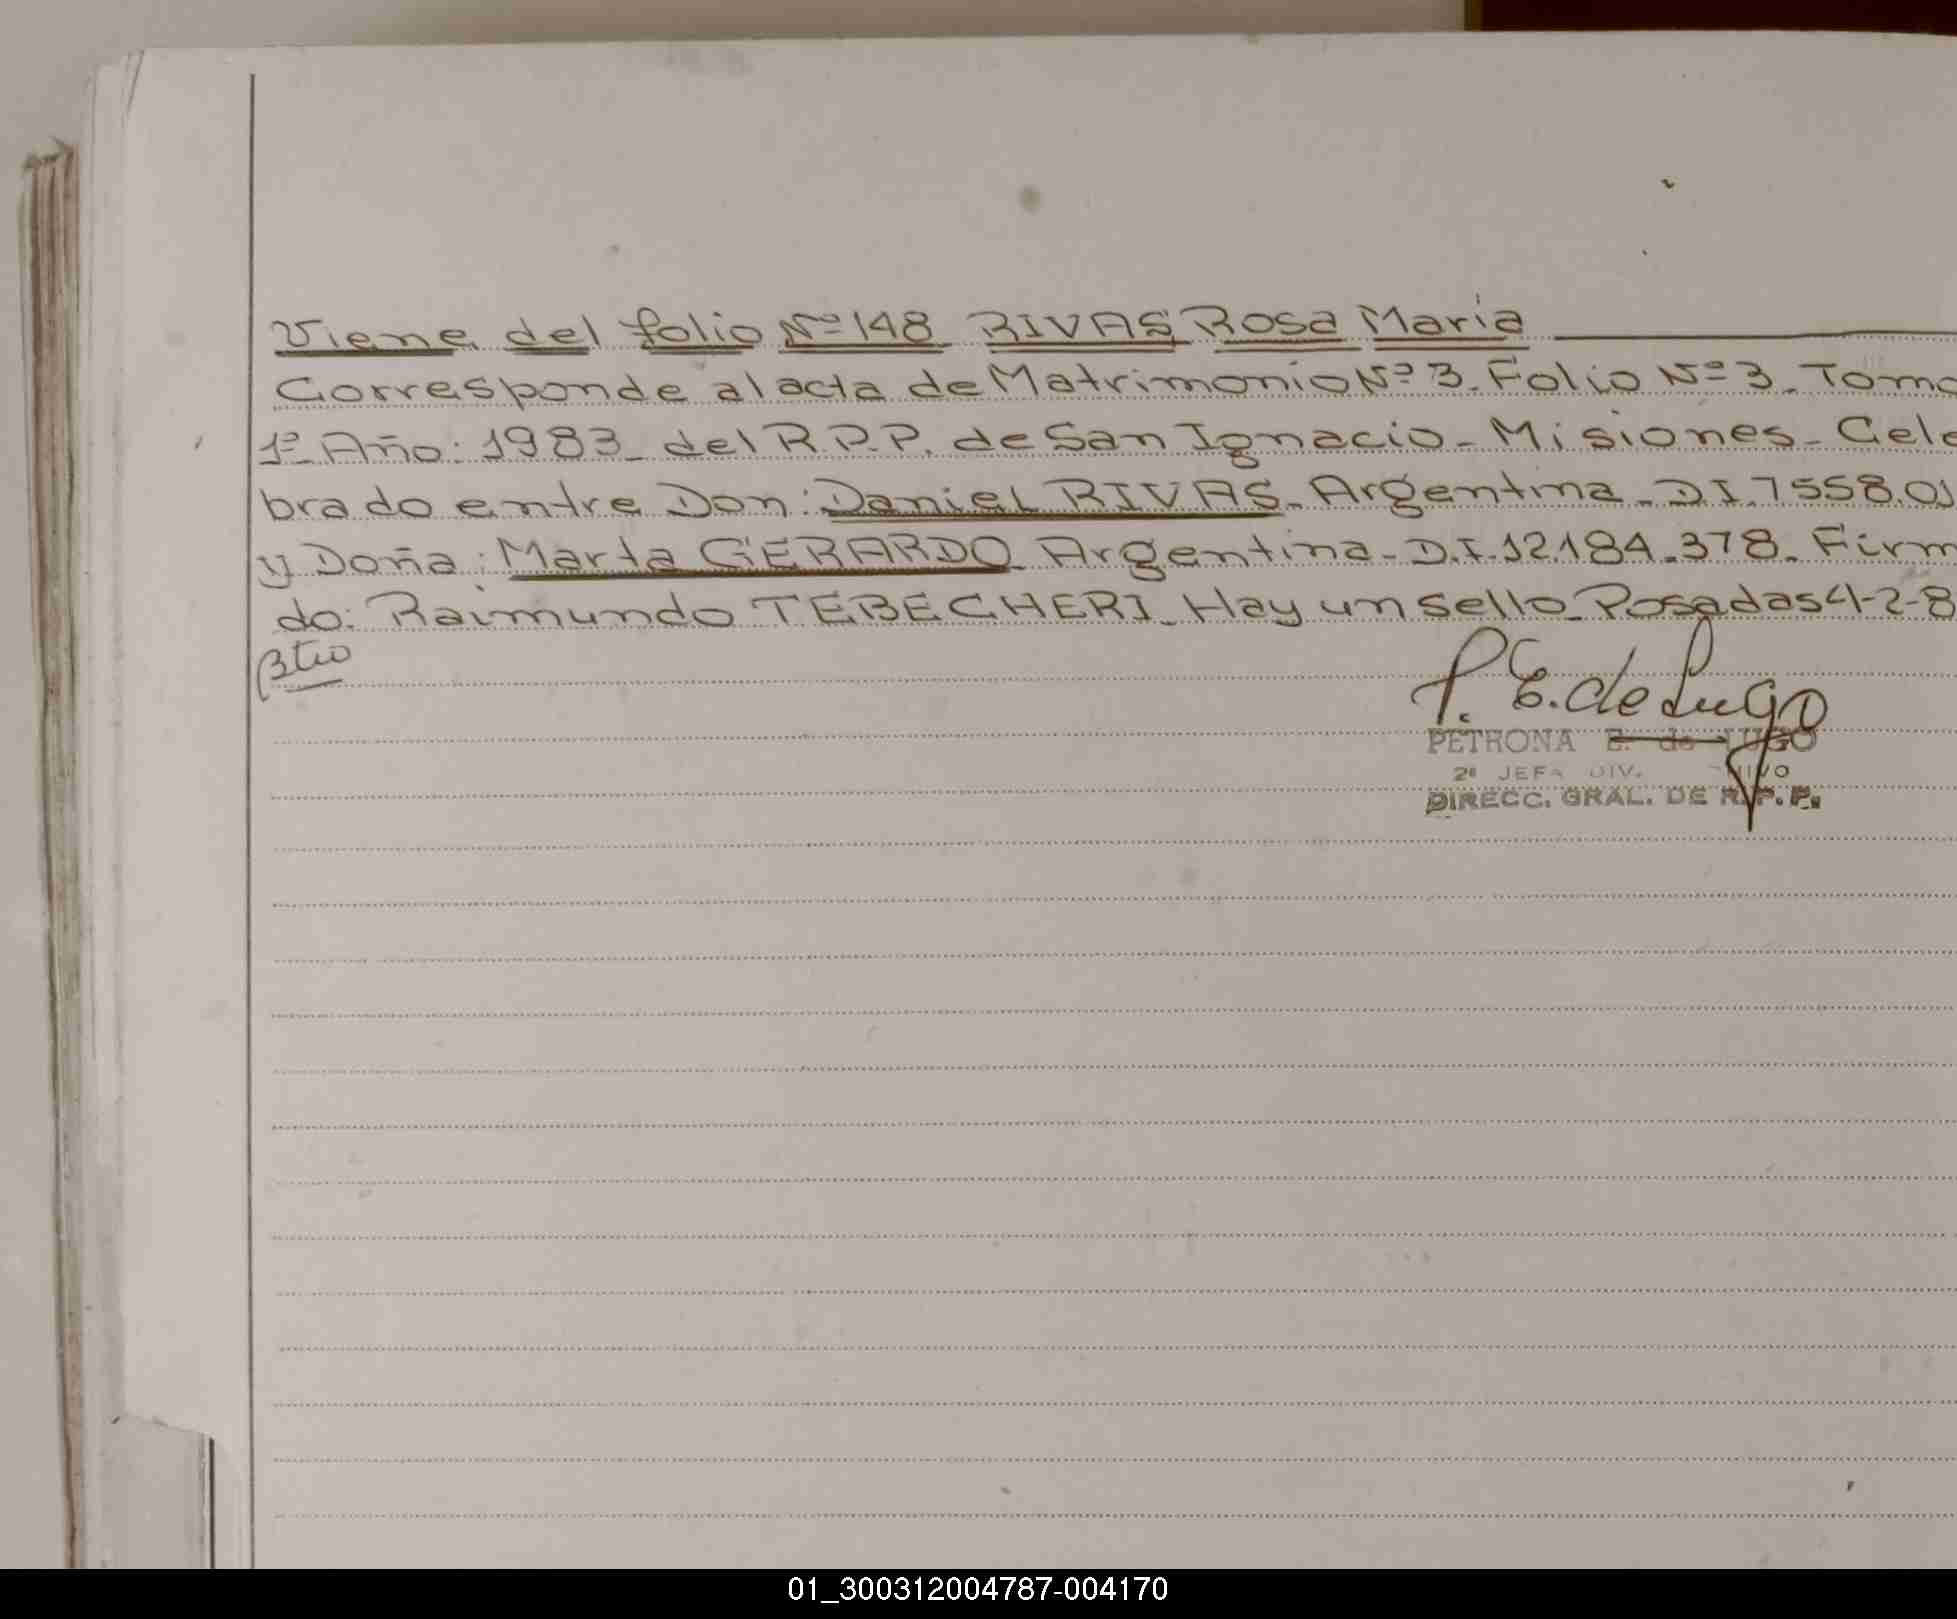 Viene del folio Nº 148 RIVAS Rosa Maria
Corresponde al acta de Matrimonio Nº 3. Folio Nº 3. Tomo
1º Año: 1983. del R.P.P. de San Ignacio - Misiones - Cele
brado entre Don: Daniel RIVAS. Argentina - D.I. 7558.01
y Doña: Marta GERARDO. Argentina - D.I. 12.184.378. Firm
do: Raimundo TEBECHERI. Hay un sello. Posadas 4-2-8
P. E. de Lugo
PETRONA E. de LUGO
2º JEFA DIV.
DIRECC. GRAL. DE R.P.P.
01_300312004787-004170